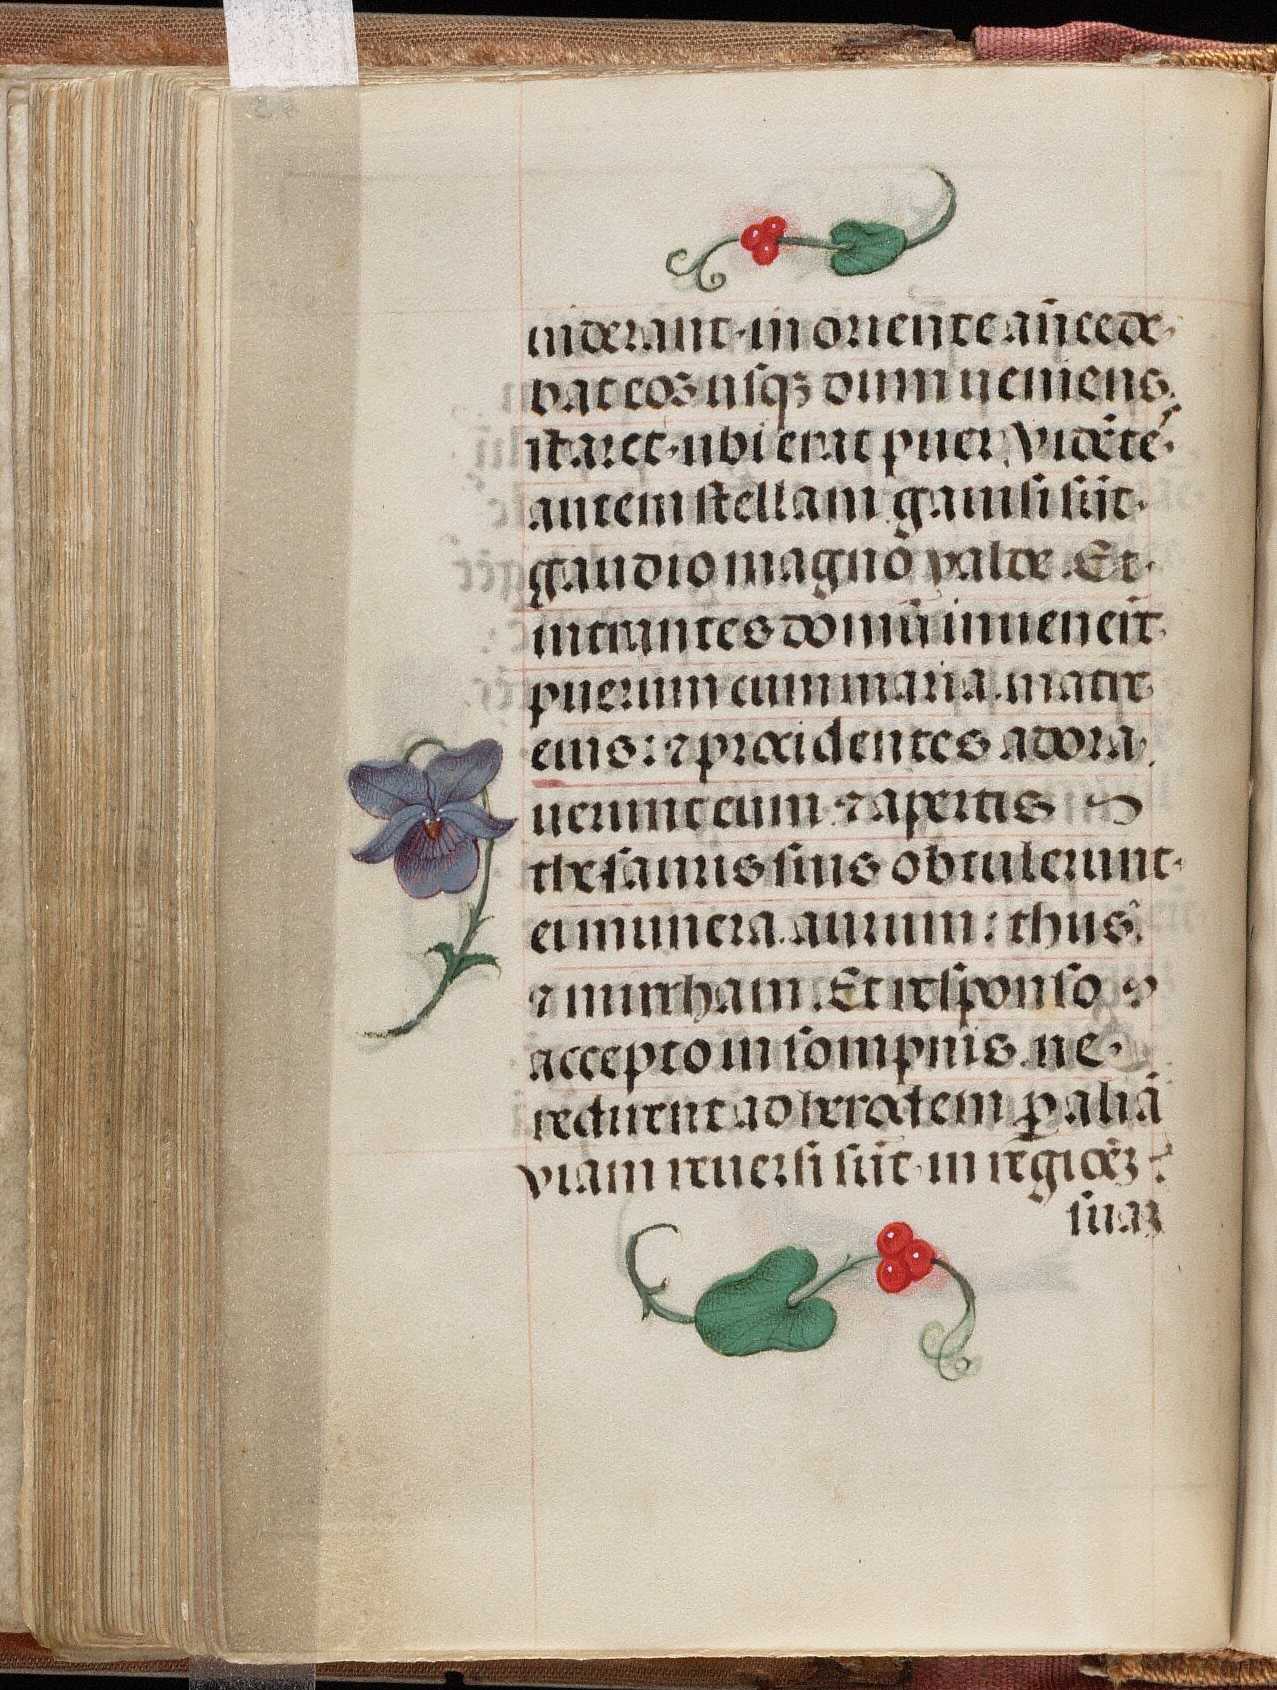 uiderant in oriente añcede
bat eos usqꝫ dum ueniens
staret ubi erat puer Vidẽte
autem stellam gauisi sũt
gaudio magno valde. Et
intrantes domũ inuenerũt
puerum cum maria matre
eius: ⁊ procidentes adora
uerunt eum ⁊ apertis
thesauris suis obtulerunt
ei munera. aurum: thus
⁊ mirrham. Et responso
accepto in sompnis. ne
redirent ad herodem ꝑ aliã
viam reuersi sũt in regioẽꝫ
suaꝫ